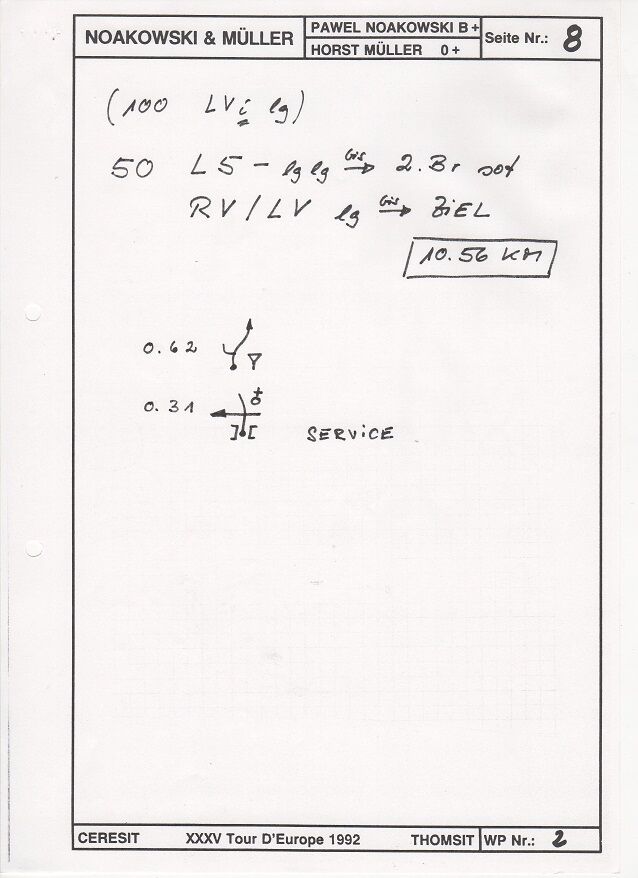 NOAKOWSKI & MÜLLER
PAWEL NOAKOWSKI B+
HORST MÜLLER 0+
Seite Nr.: 8
(100 LVi lg)
50 LS - lg lg bis → 2.Br sof
RV/LV lg bis → ZiEL
10.56 KM
0.62
0.31
SERViCE
CERESIT XXXV Tour D'Europe 1992 THOMSIT WP Nr.: 2